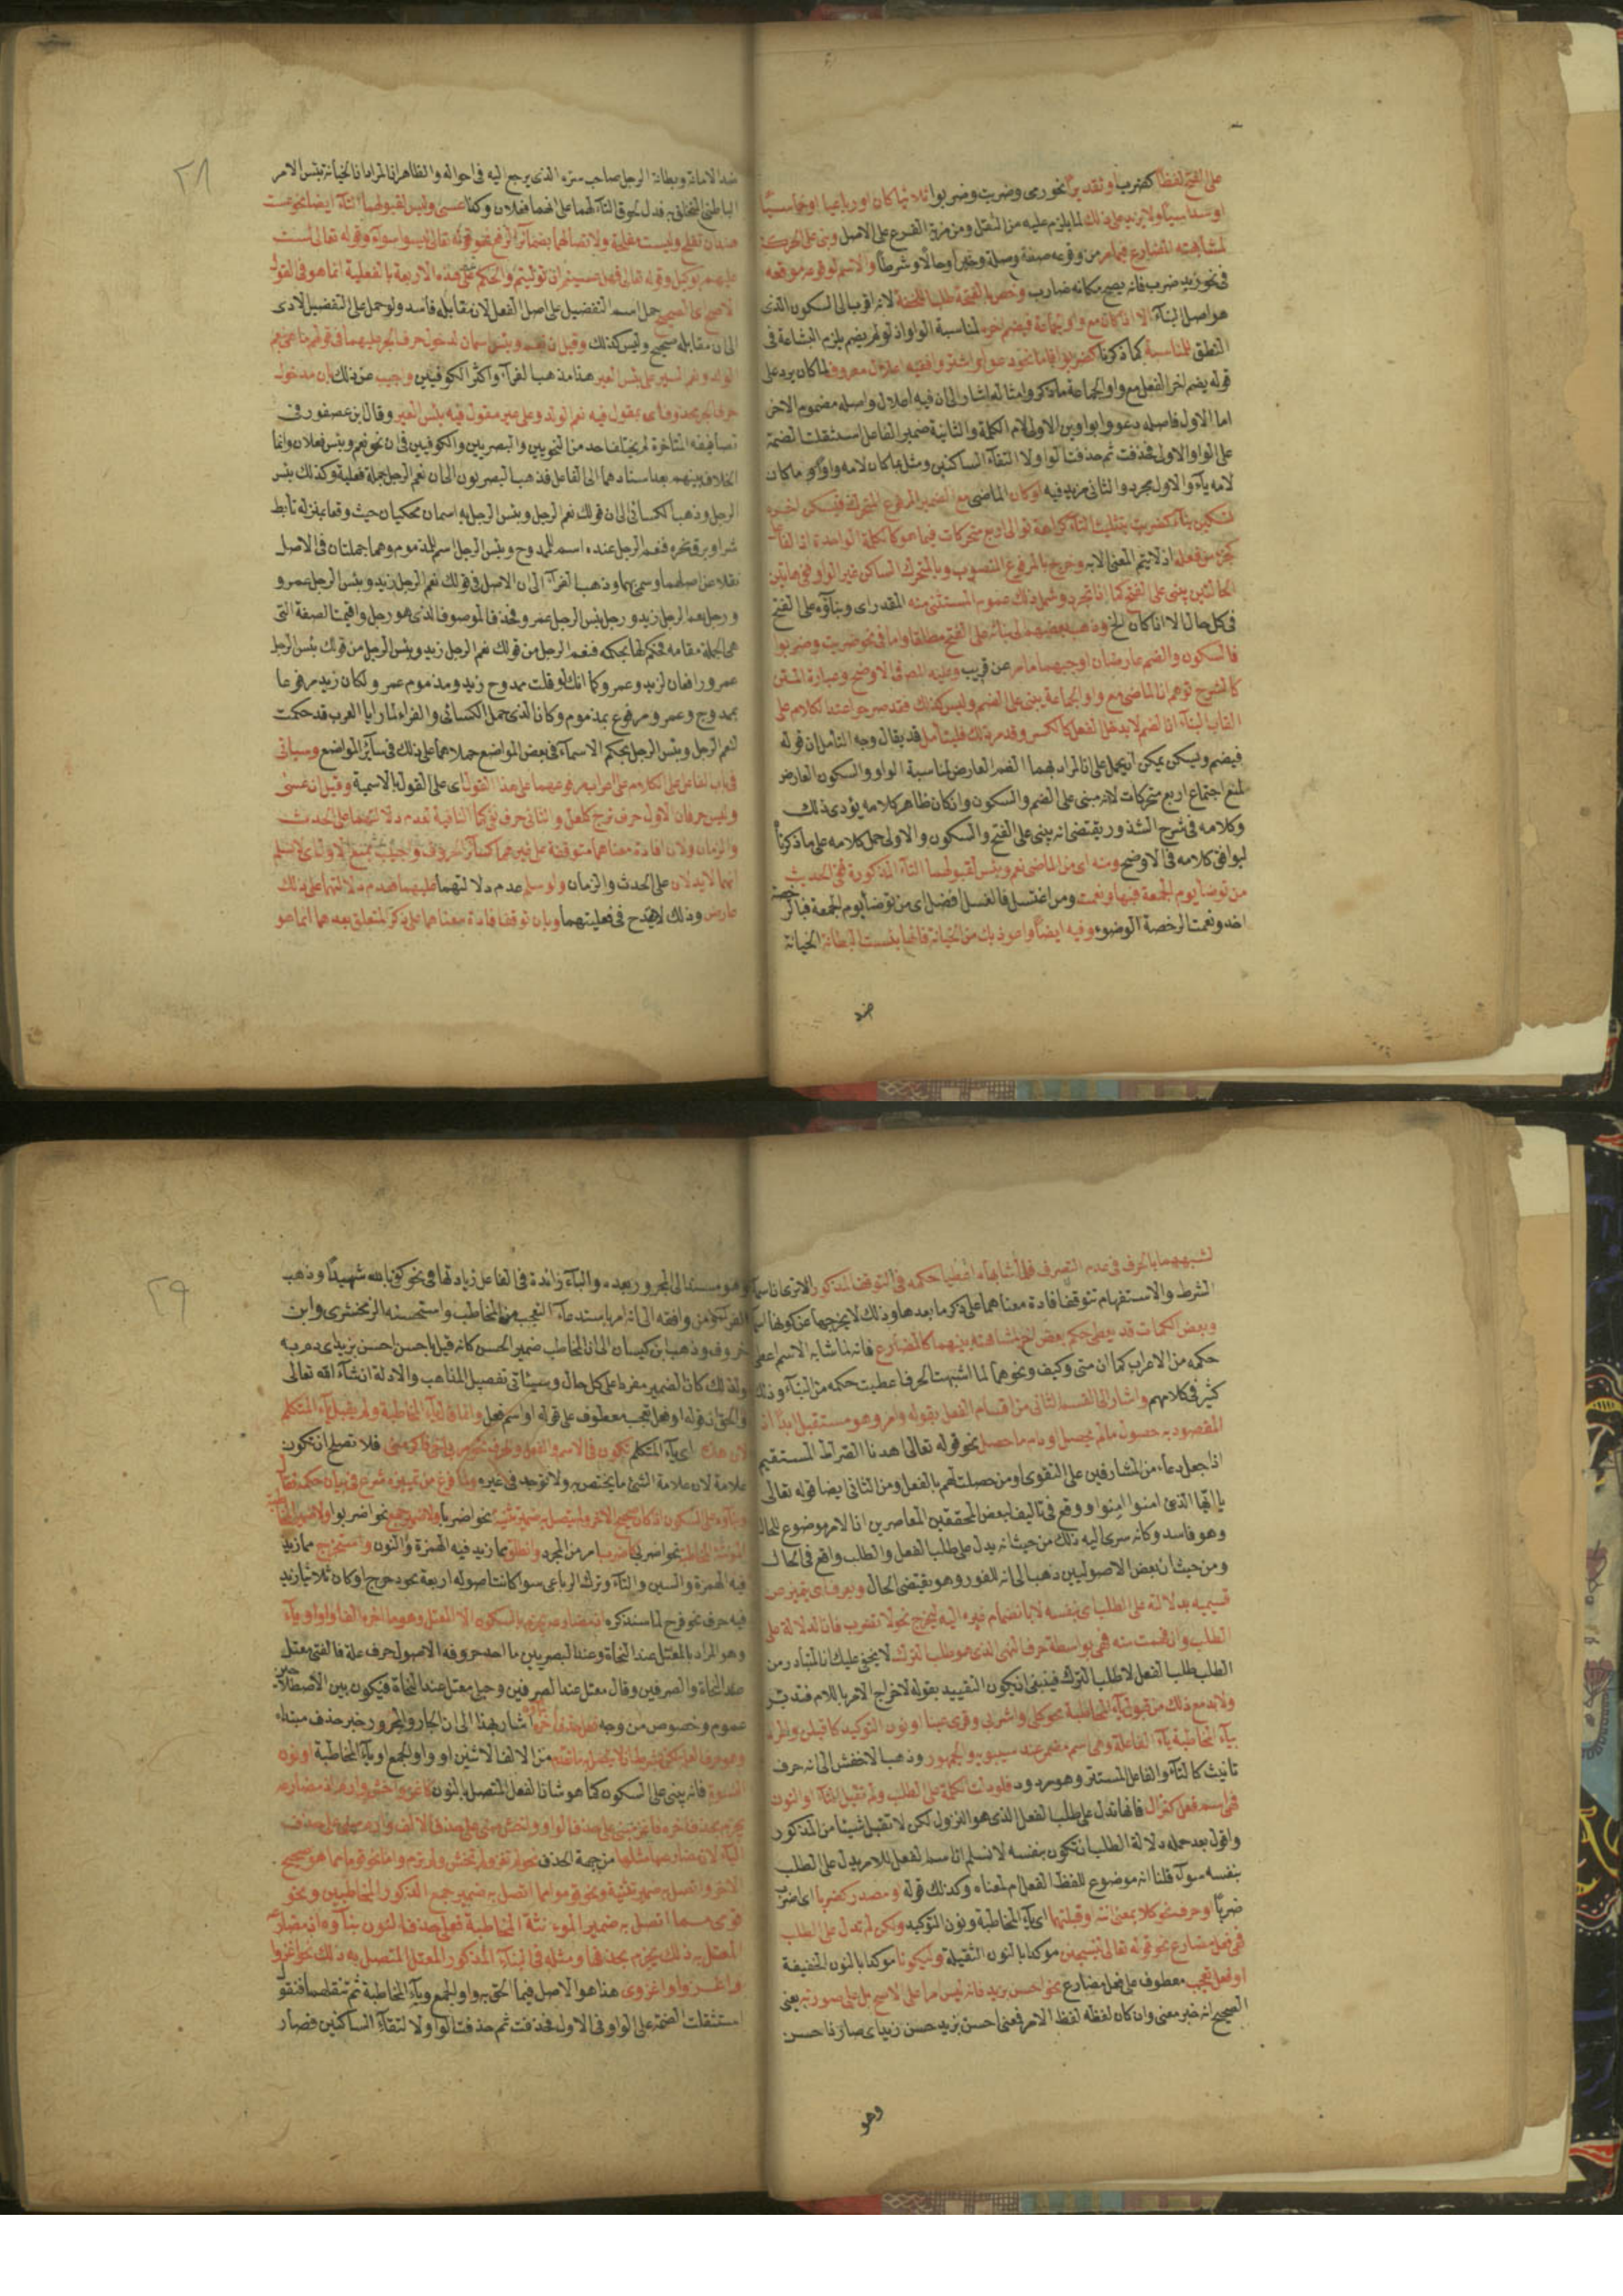 على الفتح لفظا كضرب أو تقديرا نحو رمى وضربت وضربوا ثلاثيا كان او رباعيا او خماسيا
او سداسيا ولا يزيد على ذلك لما يلزم عليه من الثقل ومن مزية الفرع على الاصل وبنى على الحركة
لمشابهته المضارع فيما مر من وقوعه صفة وصلة وخبرا وحالا وشرطا والاسم لوقوعه موقعه
فى نحو زيد ضرب فانه يصح مكانه ضارب وخص بالفتحة طلبا للخفة لانه اقرب الى السكون الذى
هو اصل البنآء الا اذا كان مع واو جماعة فيضم اخره لمناسبة الواو اذ لو لم يضم يلزم البشاعة فى
النطق للمناسبة كما ذكرنا كضربوا
قوله يضم اخر الفعل مع واو الجماعة ما ذكر وامثاله اشار الى ان فيه اعلال واصله مضموم الاخر
اما الاول فاصله دعووا بواوين الاولى لام الكلمة والثانية ضمير الفاعل استثقلت الضمة
على الواو الاولى فحذفت ثم حذفت الواو لالتقآء الساكنين ومثل ما كان لامه واوا ما كان
لامه يآء والاول مجرد والثانى مزيد فيه او كان الماضى مع الضمير المرفوع المتحرك فيسكن اخره
تسكين بنآء كضربت بتثليث التآء كراهة توالى اربع متحركات فيما هو كالكلمة الواحدة اذ الفاعل
كجزء من فعله اذ لا يتم المعنى الا به وخرج بالمرفوع المنصوب وبالمتحرك الساكن غير الواو ففى هاتين
الحالتين يبنى على الفتح كما اذا تجرد وشمل ذلك عموم المستثنى منه المقدر اى وبنآؤه على الفتح
فى كل حال الا اذا كان الخ وذهب بعضهم الى بنائه على الفتح مطلقا واما فى نحو ضربت وضربوا
فالسكون والضم عارضان اوجبهما ما مر عن قريب وعليه المص فى الاوضح وعبارة المتن
كالشرح توهم ان الماضى مع واو الجماعة يبنى على الضم وليس كذلك فقد صرحوا عند الكلام على
القاب البنآء ان الضم لا يدخل الفعل كالكسر وقد مر ذلك فليتأمل قد يقال وجه التأمل ان قوله
فيضم وليسكن يمكن ان يحمل على ان المراد بهما الضم العارض لمناسبة الواو والسكون العارض
لمنع اجتماع اربع متحركات لا انه مبنى على الضم والسكون وان كان ظاهر كلامه يؤدى ذلك
وكلامه فى شرح الشذور يقتضى انه يبنى على الفتح والسكون والاولى حمل كلامه على ما ذكرنا
ليوافق كلامه فى الاوضح ومنه اى من الماضى نعم وبئس لقبولهما التآء المذكورة ففى الحديث
من توضأ يوم الجمعة فبها ونعمت ومن اغتسل فالغسل افضل اى من توضأ يوم الجمعة فبالرخصة
اخذ ونعمت الرخصة الوضوء وفيه ايضا واعوذ بك من الخيانة فانها بئست البطانة الخيانة
ضد
٢٨
ضد الامانة وبطانة الرجل صاحب سره الذى يرجع اليه فى احواله والظاهر ان المراد ان الخيانة بئس الامر
الباطنى المتخلق به فدل لحوق التآء لهما على انهما فعلان وكذا عسى وليس لقبولهما التآء ايضا نحو عست
هند ان تفلح وليست مفلحة ولاتصالهما بضمآئر الرفع نحو قوله تعالى ليسوا سوآء وقوله تعالى لست
عليهم بوكيل وقوله تعالى فهل عسيتم ان توليتم والحكم على هذه الاربعة بالفعلية انما هو فى القول
الاصح اى الصحيح حمل اسم التفضيل على اصل الفعل لان مقابله فاسد ولو حمل على التفضيل لادى
الى ان مقابله صحيح وليس كذلك وقيل ان نعم وبئس اسمان لدخول حرف الجر عليهما فى قولهم ما هى بنعم
الولد ونعم السير على بئس العير هذا مذهب الفرآء واكثر الكوفيين واجيب عن ذلك بان مدخول
حرف الجر محذوف اى بمقول فيه نعم الولد وعلى عير مقول فيه بئس العير وقال ابن عصفور فى
تصانيفه المتأخرة لم يختلف احد من النحويين والبصريين والكوفيين فى ان نحو نعم وبئس فعلان وانما
الخلاف بينهم بعد اسنادهما الى الفاعل فذهب البصريون الى ان نعم الرجل جملة فعلية وكذلك بئس
الرجل وذهب الكسائى الى ان قولك نعم الرجل وبئس الرجل به اسمان محكيان حيث وقعا بمنزلة تأبط
شرا وبرق نحره فنعم الرجل عنده اسم للممدوح وبئس الرجل اسم للمذموم وهما جملتان فى الاصل
نقلا عن اصلهما وسمى بهما وذهب الفرآء الى ان الاصل فى قولك نعم الرجل زيد وبئس الرجل عمرو
ورجل نعم الرجل زيد ورجل بئس الرجل عمرو فحذف الموصوف الذى هو رجل واقيمت الصفة التى
هى الجملة مقامه فحكم لها بحكمه فنعم الرجل من قولك نعم الرجل زيد وبئس الرجل من قولك بئس الرجل
عمرو رافعان لزيد وعمرو كما انك لو قلت ممدوح زيد ومذموم عمرو لكان زيد مرفوعا
بممدوح وعمرو مرفوع بمذموم وكان الذى حمل الكسائى والفراء لما رايا العرب قد حكمت
لنعم الرجل وبئس الرجل بحكم الاسمآء فى بعض المواضع حملاهما على ذلك فى سآئر المواضع وسيأتى
فى باب الفاعل على الكلام على اعراب مرفوعهما على هذا القول اى على القول بالاسمية وقيل ان عسى
وليس حرفان الاول حرف ترج كلعل والثانى حرف نفى كما النافية لعدم دلالتهما على الحدث
والزمان ولان افادة معناهما متوقفة على غيرهما كسآئر الحروف واجيب بمنع الاول اى لا نسلم
انهما لا يدلان على الحدث والزمان ولو سلم عدم دلالتهما عليهما فعدم دلالتهما على ذلك
عارض وذلك لا يقدح فى فعليتهما وبان توقف افادة معناهما على ذكر المتعلق بعدهما انما هو
لشبههما بالحرف فى عدم التصرف فلما اشبهاه اعطيا حكمه فى التوقف المذكور الا ترى ان اسمآء
الشرط والاستفهام تتوقف افادة معناهما على ذكر ما بعدها وذلك لا يخرجها عن كونها اسمآء
وبعض الكلمات قد يعطى حكم بعض اخر لمشاهته بينهما كالمضارع فانه لما شابه الاسم اعطى
حكمه من الاعراب كما ان متى وكيف ونحوهما لما اشبهت الحرف اعطيت حكمه من البنآء وذلك
كثير فى كلامهم واشار الى القسم الثانى من اقسام الفعل بقوله وامر وهو مستقبل ابدا اذ
المقصود به حصول ما لم يحصل او دوام ما حصل نحو قوله تعالى اهدنا الصراط المستقيم
اذا جعل دعاء من المشارفين على التقوى او من حصلت لهم بالفعل ومن الثانى ايضا قوله تعالى
يا ايها الذين امنوا امنوا ووقع فى تأليف بعض المحققين المعاصرين ان الامر موضوع للحال
وهو فاسد وكانه سرى اليه ذلك من حيث انه يدل على طلب الفعل والطلب واقع فى الحال
ومن حيث ان بعض الاصوليين ذهب الى انه للفور وهو يقتضى الحال ويعرف اى يتميز عن
قسيميه بدلالته على الطلب اى بنفسه لا بانضمام غيره اليه ليخرج نحو لا تضرب فان دلالته على
الطلب وان فهمت منه فهى بواسطة حرف النهى الذى هو طلب الترك لا يخفى عليك ان المتبادر من
الطلب طلب الفعل لا طلب الترك فينبغى ان يكون التقييد بقوله لاخراج الامر باللام فتدبر
ولا بد مع ذلك من قبول يآء المخاطبة نحو كلى واشربى وقرى عينا او نون التوكيد كاقبلن والمراد
بيآء المخاطبة يآء الفاعلة وهى اسم مضمر عند سيبويه والجمهور وذهب الاخفش الى انه حرف
تأنيث كالتآء والفاعل المستتر وهو مردود فلو دلت الكلمة على الطلب ولم تقبل اليآء او النون
فهى اسم فعل كنزال فانها تدل على طلب الفعل الذى هو النزول لكن لا تقبل شيئا من المذكور
واقول بعد حمله دلالة الطلب ان تكون بنفسه لا نسلم ان اسم الفعل للامر يدل على الطلب
بنفسه سوآء قلنا انه موضوع للفظ الفعل ام لمعناه وكذلك قوله او مصدر كضربا اى اضرب
ضربا او حرف نحو كلا بمعنى انته او قبلتهما اى يآء المخاطبة ونون التوكيد ولكن لم تدل على الطلب
فهى فعل مضارع نحو قوله تعالى ليسجنن موكدا بالنون الثقيلة وليكونا موكدا بالنون الخفيفة
او فعل تعجب معطوف على فعل مضارع نحو احسن بزيد فانه ليس امرا على الاصح بل على صورته يعنى
الصحيح انه خبر معنى وان كان لفظه لفظ الامر فمعنى احسن بزيد حسن زيد اى صار ذا حسن
وهو
٢٩
وهو مسند الى المجرور بعده والبآء زائدة فى الفاعل زيادتها فى نحو كفى بالله شهيدا وذهب
الفرآء ومن وافقه الى انه امر باستدعآء التعجب من المخاطب واستحسنه الزمخشرى وابن
خروف وذهب ابن كيسان الى ان المخاطب ضمير الحسن كانه قيل يا حسن احسن بزيد اى دم به
ولذلك كان الضمير مفردا على كل حال وسيأتى تفصيل المذاهب والادلة ان شآء الله تعالى
والحق ان قوله او فعل تعجب معطوف على قوله او اسم فعل وانما قال يآء المخاطبة ولم يقل يآء المتكلم
لان هذه اى يآء المتكلم تكون فى الاسم والفعل والحرف فلا تصلح ان تكون
علامة لان علامة الشئ ما يختص به ولا توجد فى غيره ولما فرغ من تمييزه شرع فى بيان حكمه فقال
وبنآؤه على السكون اذا كان صحيح الاخر ولم يتصل به ضمير تثنية نحو اضربا ولا ضمير جمع نحو اضربوا ولا ضمير
المؤنثة المخاطبة نحو اضربى كاضرب امر من المجرد وانطلق مما زيد فيه الهمزة والنون واستخرج مما زيد
فيه الهمزة والسين والتآء وترك الرباعى سوا كانت اصوله اربعة نحو دحرج او كان ثلاثيا زيد
فيه حرف نحو فرح لما سنذكره ان مضارعه يجزم بالسكون الا المعتل وهو ما اخره الف او واو او يآء
وهو المراد بالمعتل عند النحاة وعند البصريين ما احد حروفه الاصول حرف علة فالفتى معتل
عند النحاة والصرفين وقال معتل عند الصرفين وحبلى معتل عند النحاة فيكون بين الاصطلاحين
عموم وخصوص من وجه فعلى حذف اخره اشار بهذا الى ان الجار والمجرور خبر حذف مبتداه
وهو حرف العلة لكن بشرط ان لا يتصل به ما تقدم من الالف الاثنين او واو الجمع او يآء المخاطبة او نون
النسوة فانه يبنى على السكون كما هو شان الفعل المتصل بالنون كاغز واخش وارم لان مضارعه
يجزم بحذف اخره فاغز مبنى على حذف الواو واخش مبنى على حذف الالف وارم مبنى على حذف
اليآء لان مضارعها مثلها من جهة الحذف نحو لم تغز ولم تخش ولم ترم واما نحو قوما مما هو صحيح
الاخر واتصل به ضمير تثنية ونحو قوموا مما اتصل به ضمير جمع المذكور المخاطبين ونحو
قومى مما اتصل به ضمير المؤنثة المخاطبة فعلى حذف النون بنآؤه لان مضارعه
المعتل به ذلك يجزم بحذفها ومثله فى البنآء المذكور المعتل المتصل به ذلك نحو اغزوا
واغزوا واغزوى هذا هو الاصل فيما الحق به واو الجمع ويآء المخاطبة ثم تنقلهما فنقول
استثقلت الضمة على الواو فى الاول فحذفت ثم حذفت الواو لالتقآء الساكنين فصار